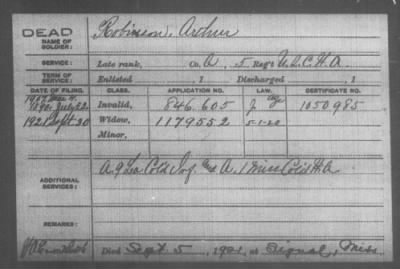 DEAD
NAME OF SOLDIER: Robinson, Arthur
SERVICE: Late rank, Co. A, 5 Reg't U.S.C.H.A.
TERM OF SERVICE: Enlisted , 1 Discharged , 1
DATE OF FILING. CLASS. APPLICATION NO. LAW. CERTIFICATE NO.
1907
1890 July 22 Invalid, 846.605 J 1050985
1921 Sept 30 Widow, 1179552 5-1-20
Minor,
ADDITIONAL SERVICES: A. 9 La Cold Inf. A. 1 Miss Cold H.A.
REMARKS:
Died Sept 5, 1921, at Signal, Miss